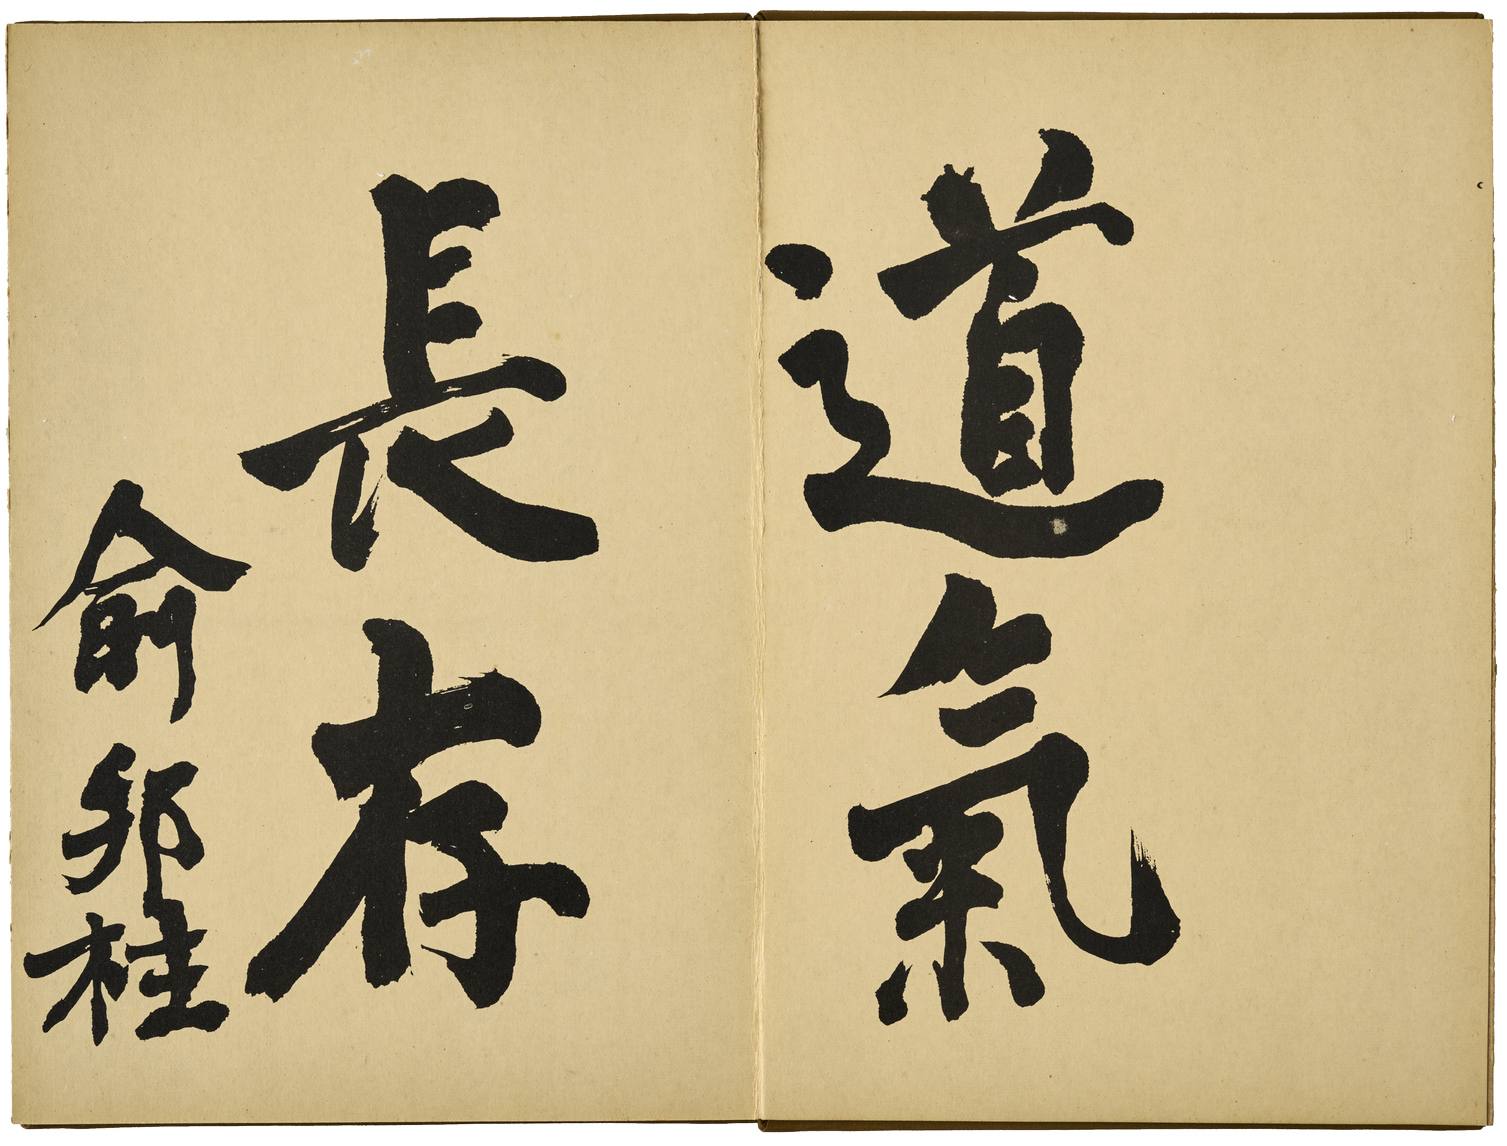 道氣
長存
俞卯桂